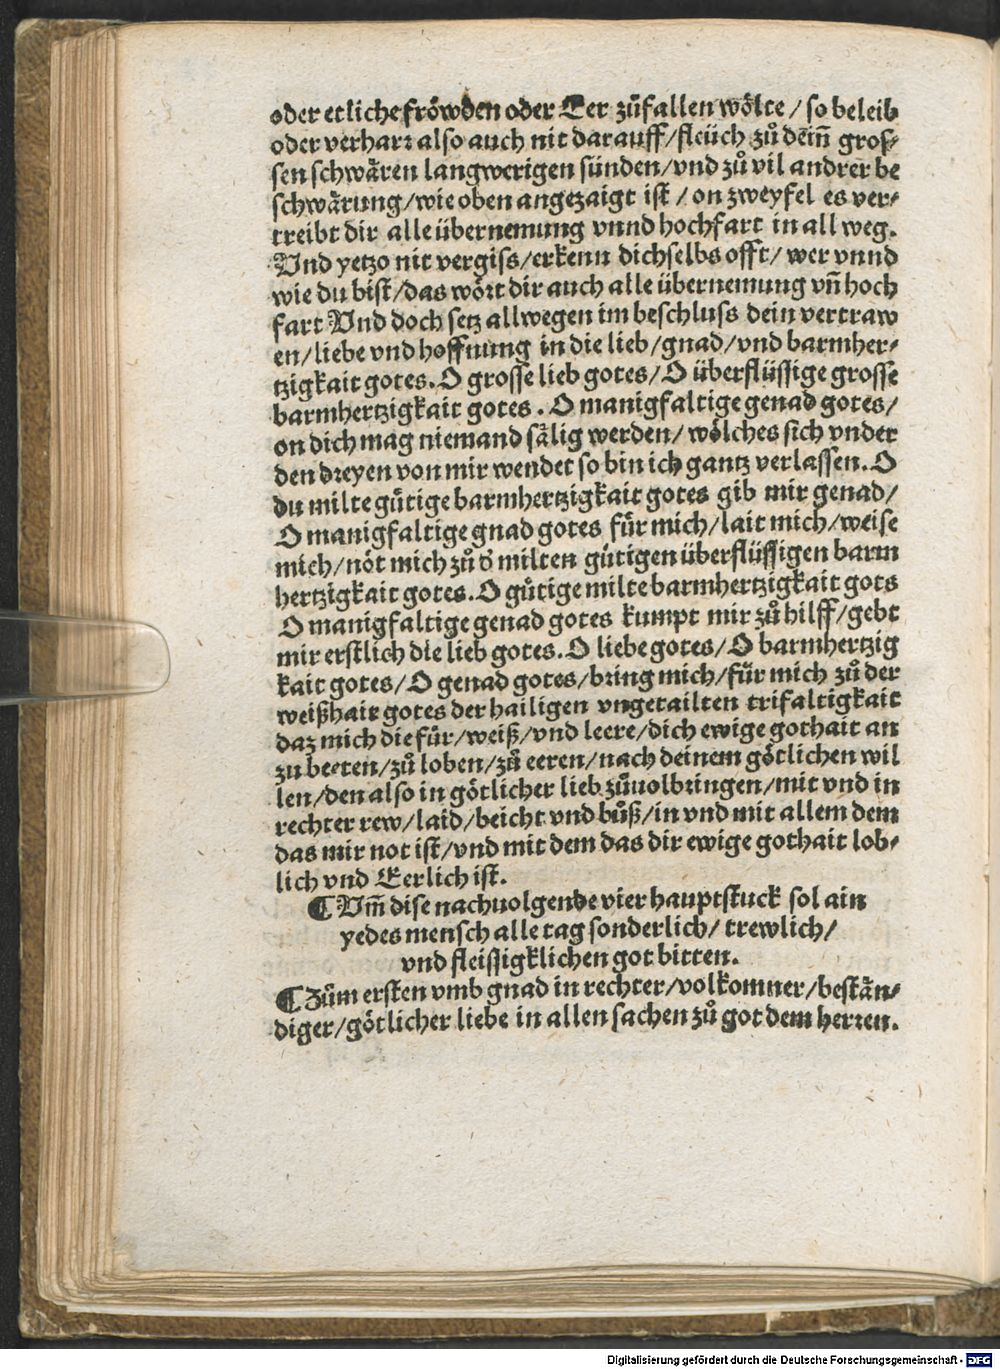 oder etliche fröwden oder Eer zůfallen wölte / so beleib
oder verharr also auch nit darauff/fleüch zů dein̄ gros-
sen schwären langwerigen sünden/vnd zů vil andrer be
schwärung/wie oben angezaigt ist / on zweyfel es ver-
treibt dir alle übernemung vnnd hochfart in all weg.
Vnd yetzo nit vergiss/erkenn dichselbs offt/ wer vnnd
wie du bist/das wört dir auch alle übernemung vn̄ hoch
fart Vnd doch setz allwegen im beschluss dein vertraw
en/liebe vnd hoffnung in die lieb/gnad/vnd barmher-
tzigkait gotes. O grosse lieb gotes/ O überflüssige grosse
barmhertzigkait gotes . O manigfaltige genad gotes/
on dich mag niemand sälig werden/ wölches sich vnder
den dreyen von mir wendet so bin ich gantz verlassen. O
du milte gůtige barmhertzigkait gotes gib mir genad/
O manigfaltige gnad gotes für mich/lait mich/weise
mich/nöt mich zů d' milten gütigen überflüssigen barm
hertzigkait gotes. O gůtige milte barmhertzigkait gots
O manigfaltige genad gotes kumpt mir zů hilff/gebt
mir erstlich die lieb gotes. O liebe gotes/ O barmhertzig
kait gotes/ O genad gotes/bring mich/für mich zů der
weißhait gotes der hailigen vngetailten trifaltigkait
daz mich die für/weiß/vnd leere/dich ewige gothait an
zu beeten/zů loben/zů eeren/nach deinem götlichen wil
len/den also in götlicher lieb zůuolbringen/mit vnd in
rechter rew/laid/beicht vnd bůß/in vnd mit allem dem
das mir not ist/vnd mit dem das dir ewige gothait lob-
lich vnd Eerlich ist.
¶ Vm̄ dise nachuolgende vier hauptstuck sol ain
yedes mensch alle tag sonderlich/ trewlich/
vnd fleissigklichen got bitten.
¶ Zům ersten vmb gnad in rechter/volkomner/bestän-
diger/götlicher liebe in allen sachen zů got dem herren.
Digitalisierung gefördert durch die Deutsche Forschungsgemeinschaft - DFG